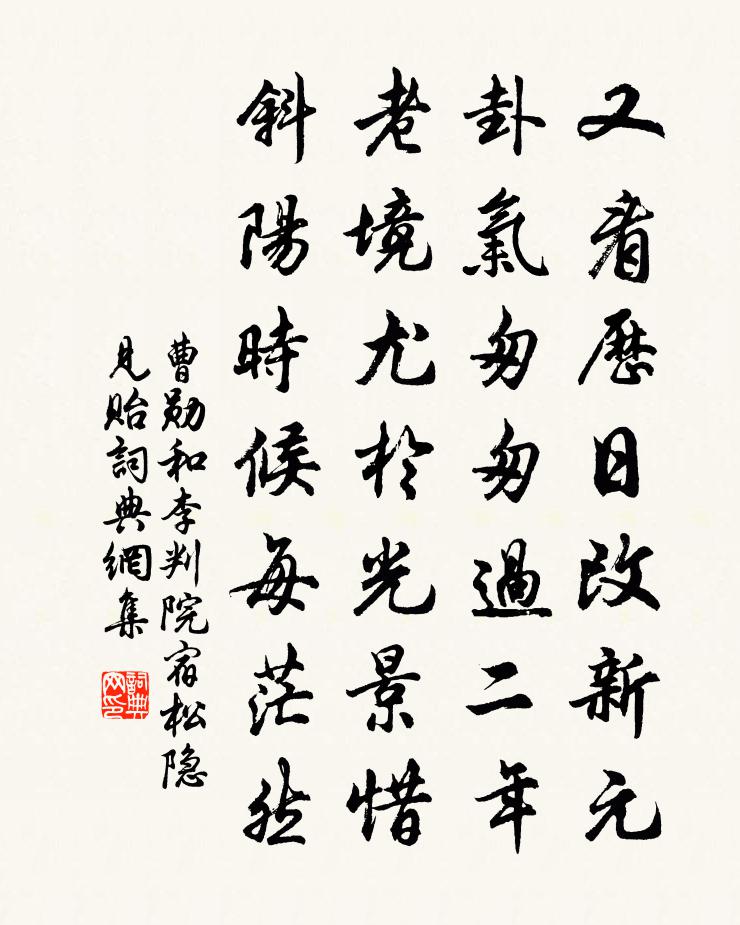 又看歷日改新元
卦氣匆匆過二年
老境尤於光景惜
斜陽時候每茫然
曹勛和李判院宿松隐
見貽詞典網集
詞典網印